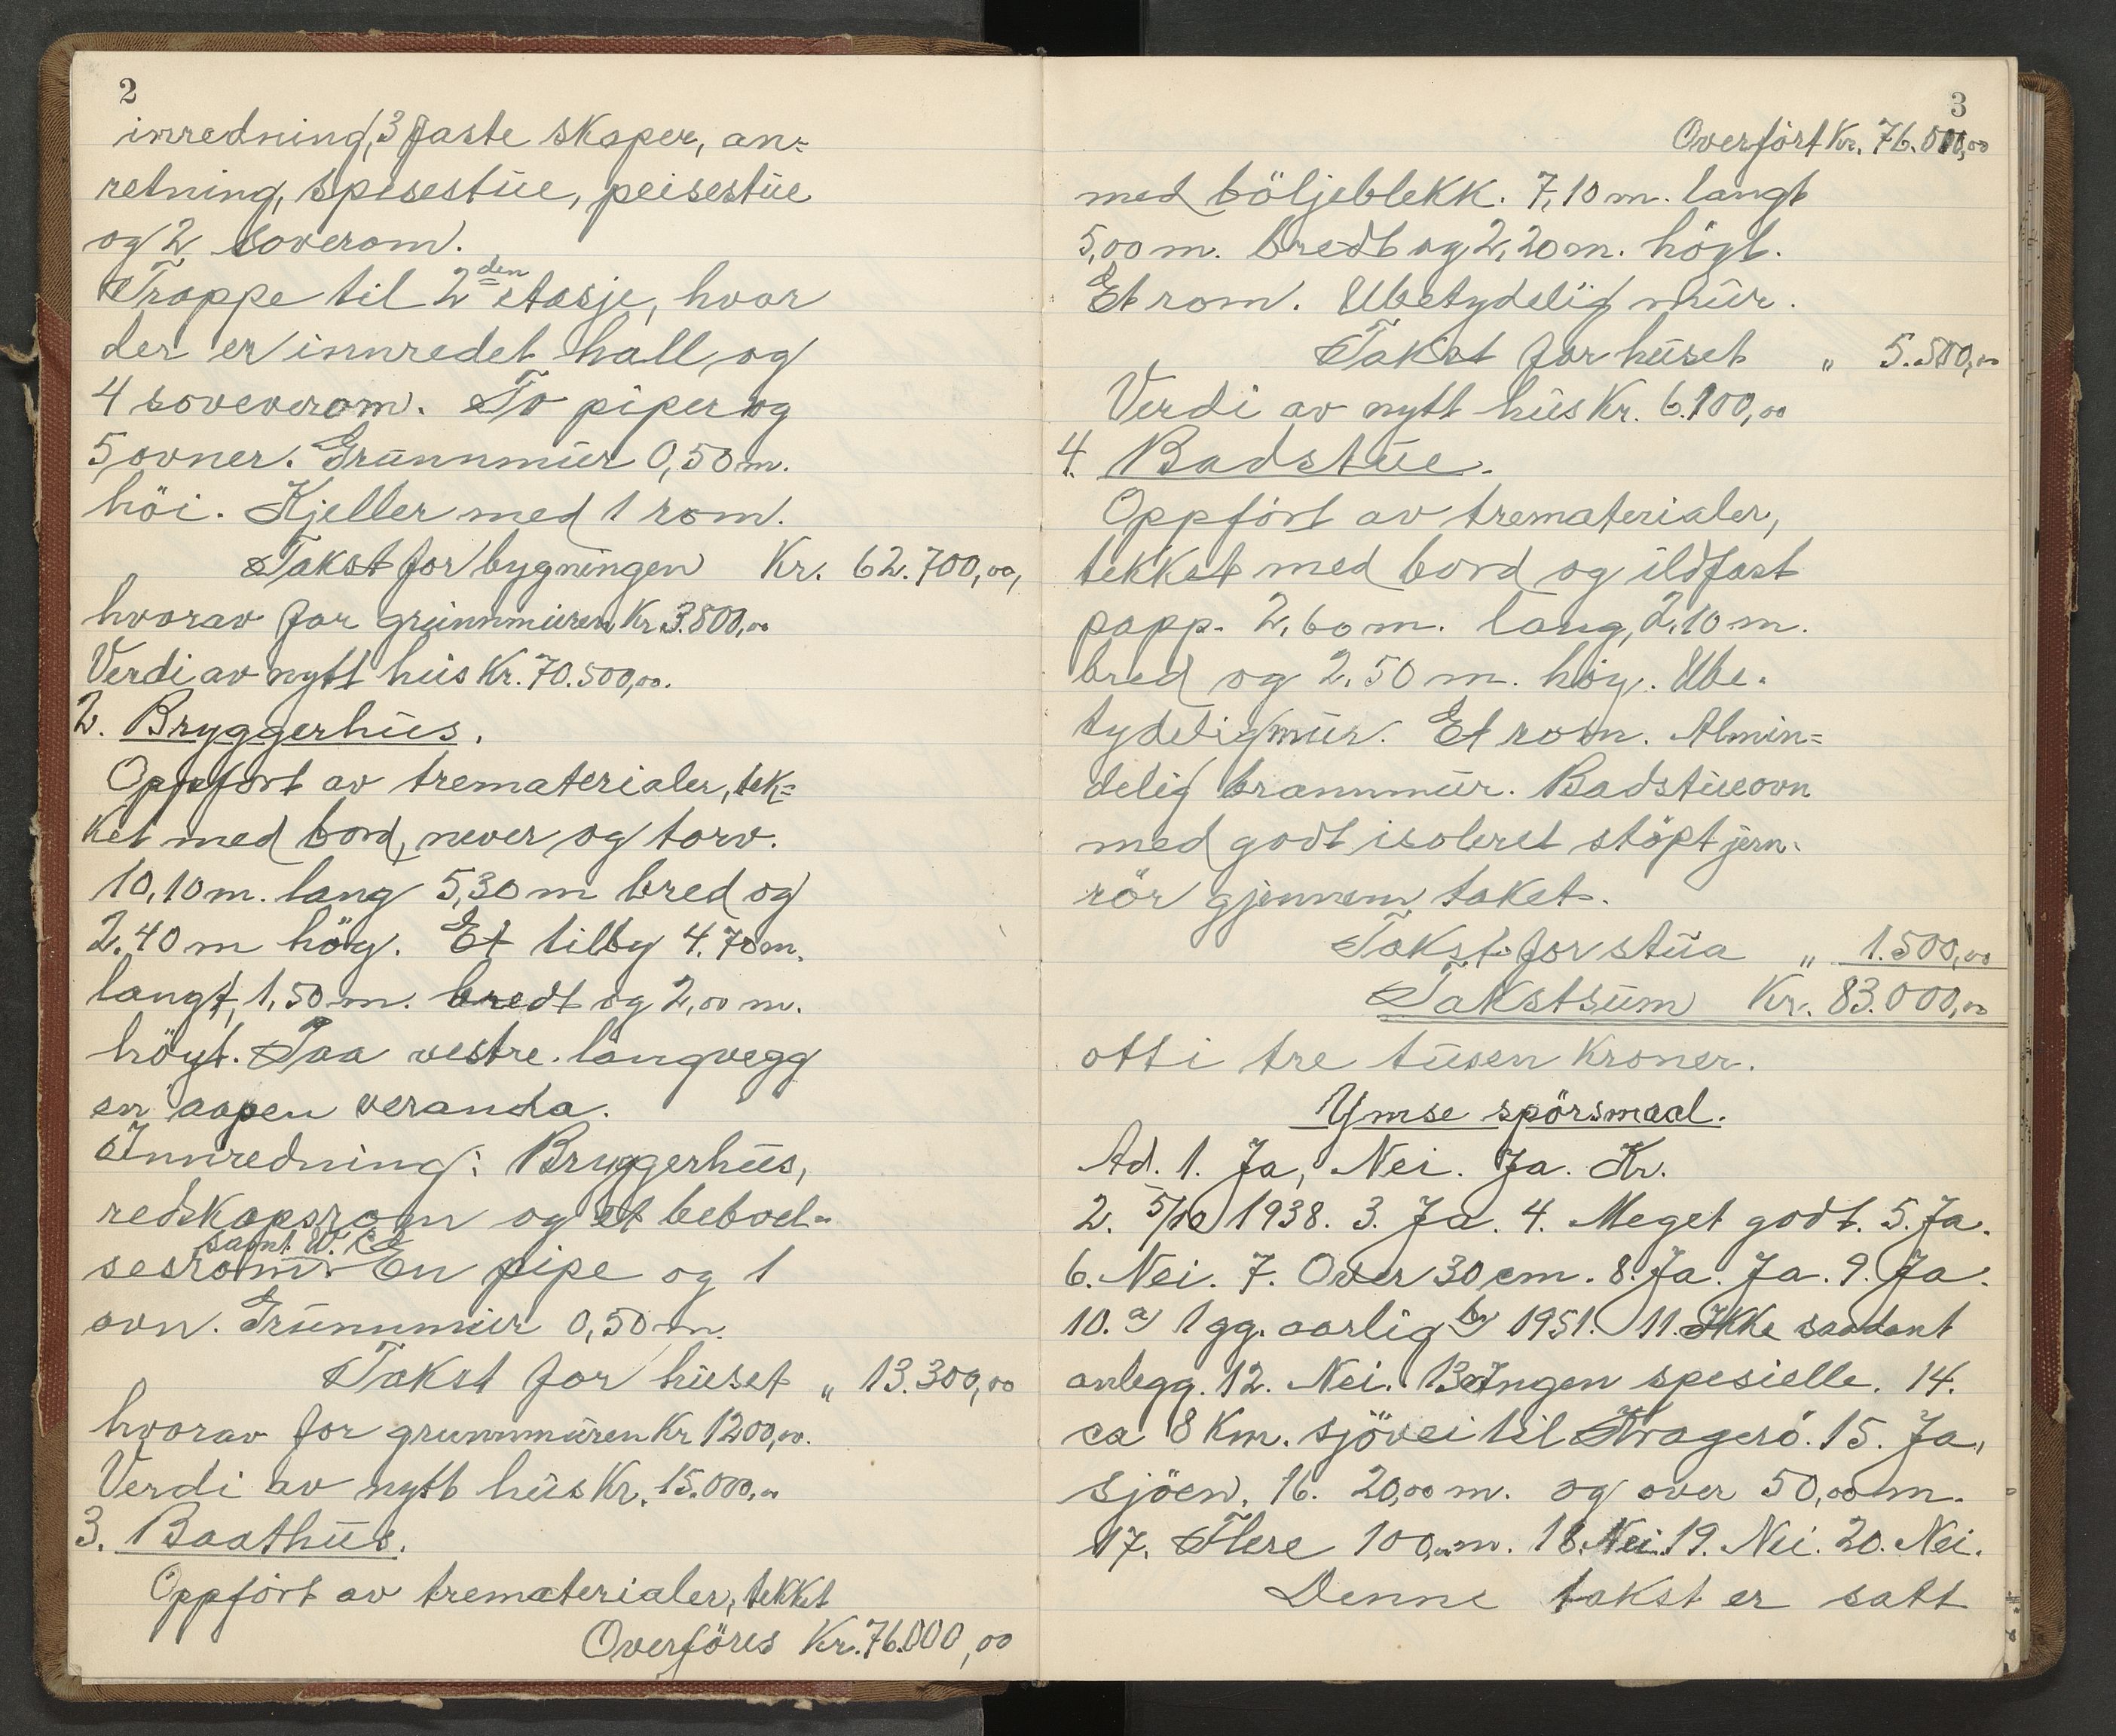 2
innredning, 3 faste skaper, an=
retning, spisestue, peisestue
og 2 soverom.
Trappe til 2den etasje, hvor
der er innredet hall og
4 soveverom. To piper og
5 ovner. Grunnmur 0,50 m.
höi. Kjeller med 1 rom.
Takst for bygningen Kr. 62.700,00,
hvorav for grunnmuren Kr. 3.800,00
Verdi av nytt hus Kr. 70.500,00.
2. Bryggerhus.
Oppfört av trematerialer, tek=
ket med bord, never og torv.
10,10 m. lang 5,30 m bred og
2.40 m hög. Et tilby 4.70 m.
langt, 1,50 m. bredt og 2,00 m.
högt. Paa vestre langvegg
en aapen veranda.
Innredning: Bryggerhus,
redskapsrom og et beboel-
samt W. C.
sesrom. En pipe og 1
ovn. Grunnmur 0,50 m.
Takst for huset " 13.300,00
hvorav for grunnmuren Kr 1200,00.
Verdi av nytt hus Kr. 15.000,00
3. Baathus.
Oppfört av trematerialer, tekket
Overföres Kr. 76.000,00
3
Overfört Kr. 76.000,00
med böljeblekk. 7,10 m. langt
5,00 m. bredt og 2,20 m. högt.
Et rom. Ubetydelig mur.
Takst for huset " 5.500,00
Verdi av nytt hus Kr. 6.100,00
4. Badstue.
Oppfört av trematerialer,
tekket med bord og ildfast
papp. 2,60 m. lang, 2,10 m.
bred og 2.50 m. hög. Ube-
tydelig mur. Et rom. Almin=
delig brannmur. Badstueovn
med godt isoleret stöpt jern-
rör gjennem taket.
Takst for stua " 1.500,00
Takstsum Kr. 83.000,00
otti tre tusen kroner.
Ymse spörsmaal.
Ad. 1. Ja, Nei. Ja. Kr.
2. 5/10 1938. 3. Ja. 4. Meget godt. 5. Ja.
6. Nei. 7. Over 30 cm. 8. Ja. Ja. 9. Ja.
10. a) 1 gg. aarlig b) 1951. 11. Ikke saadant
anlegg. 12. Nei. 13. Ingen spesielle. 14.
ca 8 Km. sjövei til Kragerö. 15. Ja,
sjöen. 16. 20,00 m. og over 50,00 m.
17. Flere 100,00 m. 18. Nei. 19. Nei. 20. Nei.
Denne takst er satt